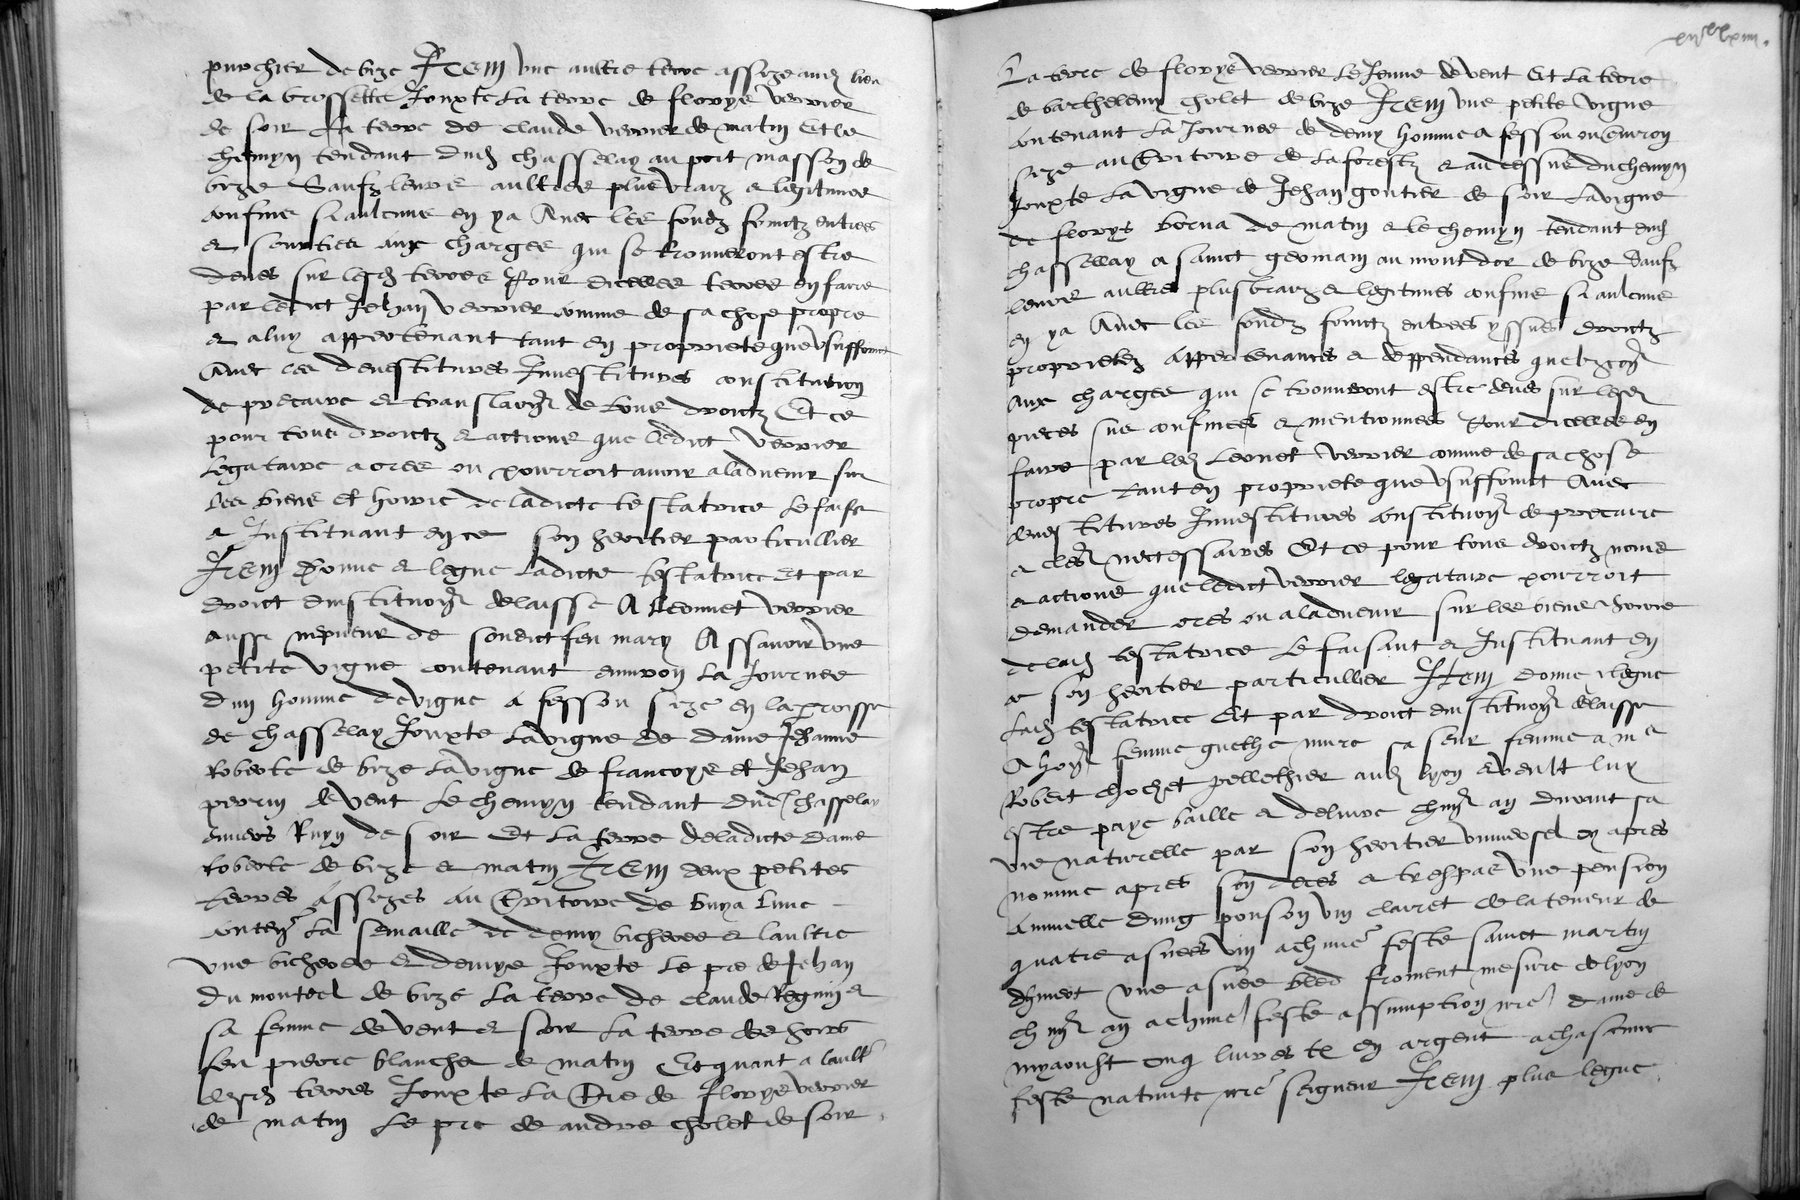 porchier de bize Item une aultre terre assize aud lieu
de la brossette Jouxte La terre de florys verrier
de soir La terre de Claude verrier de matin Et le
chemyn tendant dud chasselay au port masson de
bize Saufz leurs aultres plus vraiz & legitimes
confins si aulcuns en ya Avec les fondz fruictz entrees
& sourties aux charges qui se trouveront estre
deues sur lesd terres Pour dicelles terres en faire
par ledict Jehan verrier comme de sa chose propre
& a luy appertenant tant en propriete que usuffruict
Avec les devestitures Investitures constitution
de precaire & translaon de tous droictz Et ce
pour tous droictz & actions que ledict verrier
Legataire a ores ou pourroit avoir a ladvenir sur
les biens et hoirie de ladicte testatrice Le faist
& Instituant en ce son heritier particullier
Item Donne & legue Ladicte testatrice Et par
droict dinstituon delaisse A Leonnet verrier
aussi nepveur de sondict feu mary Assavoir une
petite vigne contenant environ La Journee
dun homme de vigne a fesson size en la proisse
de chasselay Jouxte La vigne de dame Jehanne
Roberte de bize La vigne de francoys et Jehan
perrin de vent Le chemyn tendant dud chasselay
envers de soir Et La terre de ladicte dame
Roberte de bize & matin Item deux petites
terres assizes au Tritoire de buya Lune
conten La semaille de demy bicheree & laultre
une bicheree & demye Jouxte Le pre de Jehan
du monteel de bize La terre de Claude &
sa femme de vent & soir La terre des hoirs
feu pierre blanchet de matin Et quant a laultre
desd terres Jouxte La Tre de florys verrier
de matin Le pre de andre cholet de soir
La terre de florys verrier Le Jeune de vent Et La terre
de barthelemy cholet de bize Item une petite vigne
contenant La Journee de demy homme a fesson ou environ
size au Tritoire de La forestz & au dessus du chemyn
Jouxte La vigne de Jehan gontier de soir La vigne
de florys borna de matin & le chemyn tendant dud
chassellay a sainct germain au mont dor de bize Saufz
leurs aultres plus vraiz & legitimes confins si aulcuns
en ya Avec les fondz fruictz entrees yssues droictz
proprietez appertenances & deppendances quelzcon
Aux charges qui se trouveront estre deues sur lesd
pieces sus confinees & mentionnees Pour dicelles en
faire par led Leonet verrier comme de sa chose
propre tant en propriete que usuffruict Avec
devestitures Investitures constituon de precaire
& cles neccessaires Et ce pour tous droictz noms
& actions que ledict verrier legataire pourroit
demander ores ou a ladvenir sur les biens & hoirie
de lad testatrice Le faisant & Instituant en
ce son heritier particullier Item donne & legue
Lad testatrice Et par droict dinstituon delaisse
A hon femme murc sa seur femme a me
Robert chochet pellethier aud lyon & veult luy
estre paye baille & delivre chun an durant sa
vie naturelle par son heritier universel cy apres
nomme apres son deces & trespas une pension
annuelle dung ponson vin clairet de la teneur de
quatre asnees vin a chune feste sainct martin
dhiver une asnee bled froment mesure de lyon
chun an a chune feste assumption nre dame de
myaoust cinq livres tz en argent a chascune
feste nativite nre seigneur Item plus legue